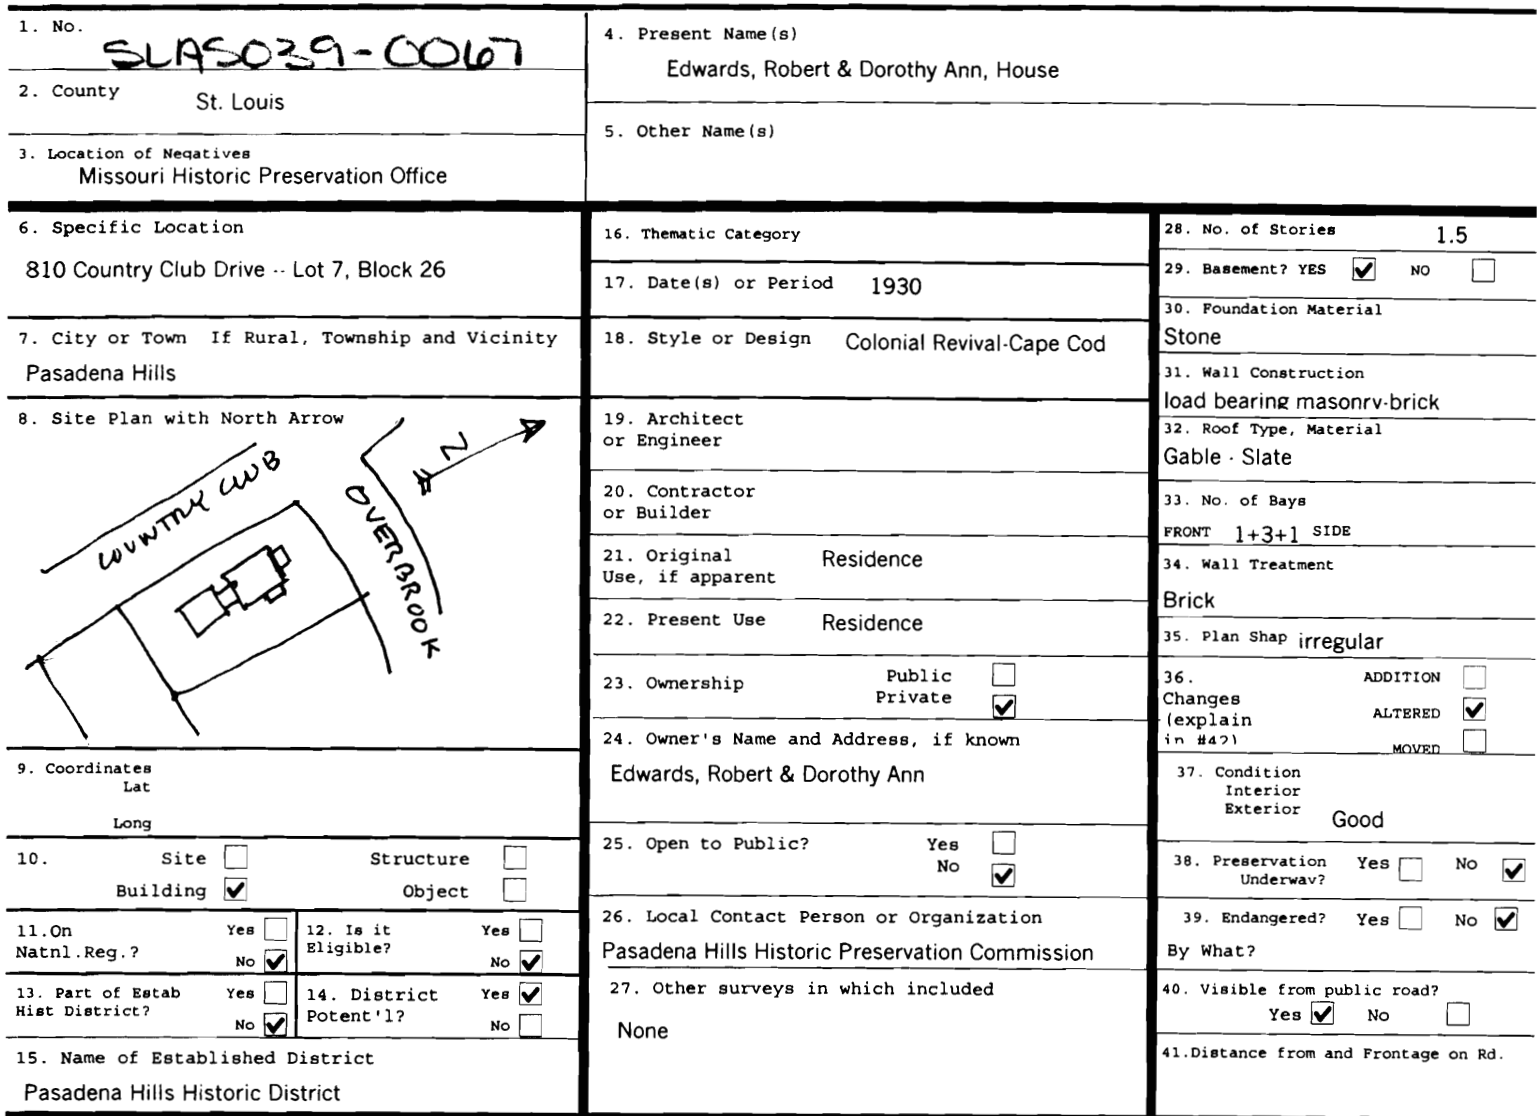 1. No.
SLAS039-0067
2. County
St. Louis
3. Location of Negatives
Missouri Historic Preservation Office
4. Present Name(s)
Edwards, Robert & Dorothy Ann, House
5. Other Name(s)
6. Specific Location
810 Country Club Drive -- Lot 7, Block 26
7. City or Town If Rural, Township and Vicinity
Pasadena Hills
8. Site Plan with North Arrow
COUNTRY CLUB
OVERBROOK
N
9. Coordinates
Lat
Long
10. Site Structure
Building Object
11.On Yes
Natnl.Reg.? No
12. Is it Yes
Eligible? No
13. Part of Estab Yes
Hist District? No
14. District Yes
Potent'l? No
15. Name of Established District
Pasadena Hills Historic District
16. Thematic Category
17. Date(s) or Period 1930
18. Style or Design Colonial Revival-Cape Cod
19. Architect
or Engineer
20. Contractor
or Builder
21. Original Residence
Use, if apparent
22. Present Use Residence
23. Ownership Public
Private
24. Owner's Name and Address, if known
Edwards, Robert & Dorothy Ann
25. Open to Public? Yes
No
26. Local Contact Person or Organization
Pasadena Hills Historic Preservation Commission
27. Other surveys in which included
None
28. No. of Stories 1.5
29. Basement? YES NO
30. Foundation Material
Stone
31. Wall Construction
load bearing masonry-brick
32. Roof Type, Material
Gable - Slate
33. No. of Bays
FRONT 1+3+1 SIDE
34. Wall Treatment
Brick
35. Plan Shap irregular
36. ADDITION
Changes
(explain ALTERED
in #42) MOVED
37. Condition
Interior
Exterior Good
38. Preservation Yes No
Underway?
39. Endangered? Yes No
By What?
40. Visible from public road?
Yes No
41.Distance from and Frontage on Rd.